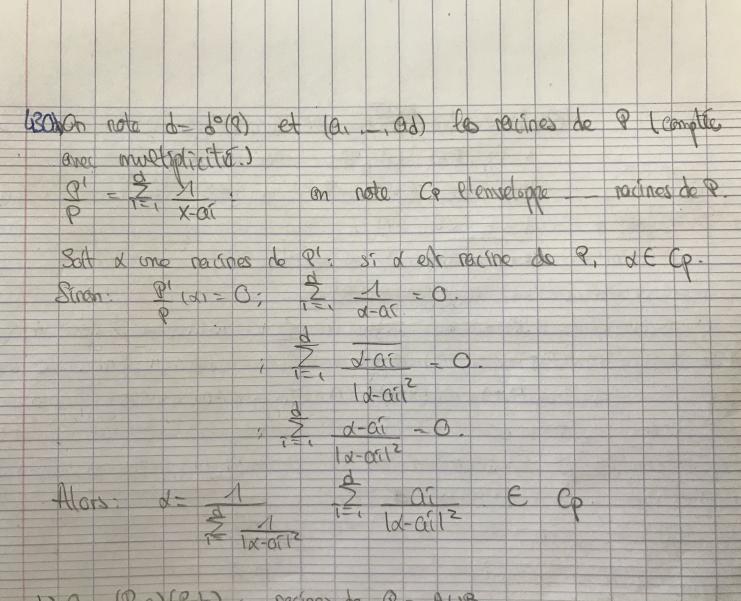 430h) On note d = d°(P) et (a1, ..., ad) les racines de P (comptée
avec multiplicité.)
P'/P = Σ_{i=1}^{d} 1/(X-ai) : on note Cp l'enveloppe ___ racines de P.
Soit α une racines de P' : si α est racine de P, α ∈ Cp.
Sinon : P'/P (α) = 0 ; Σ_{i=1}^{d} 1/(α-ai) = 0.
; Σ_{i=1}^{d} \overline{α-ai}/|α-ai|² = 0.
; Σ_{i=1}^{d} (α-ai)/|α-ai|² = 0.
Alors : α = 1/(Σ_{i=1}^{d} 1/|α-ai|²) Σ_{i=1}^{d} ai/|α-ai|² ∈ Cp